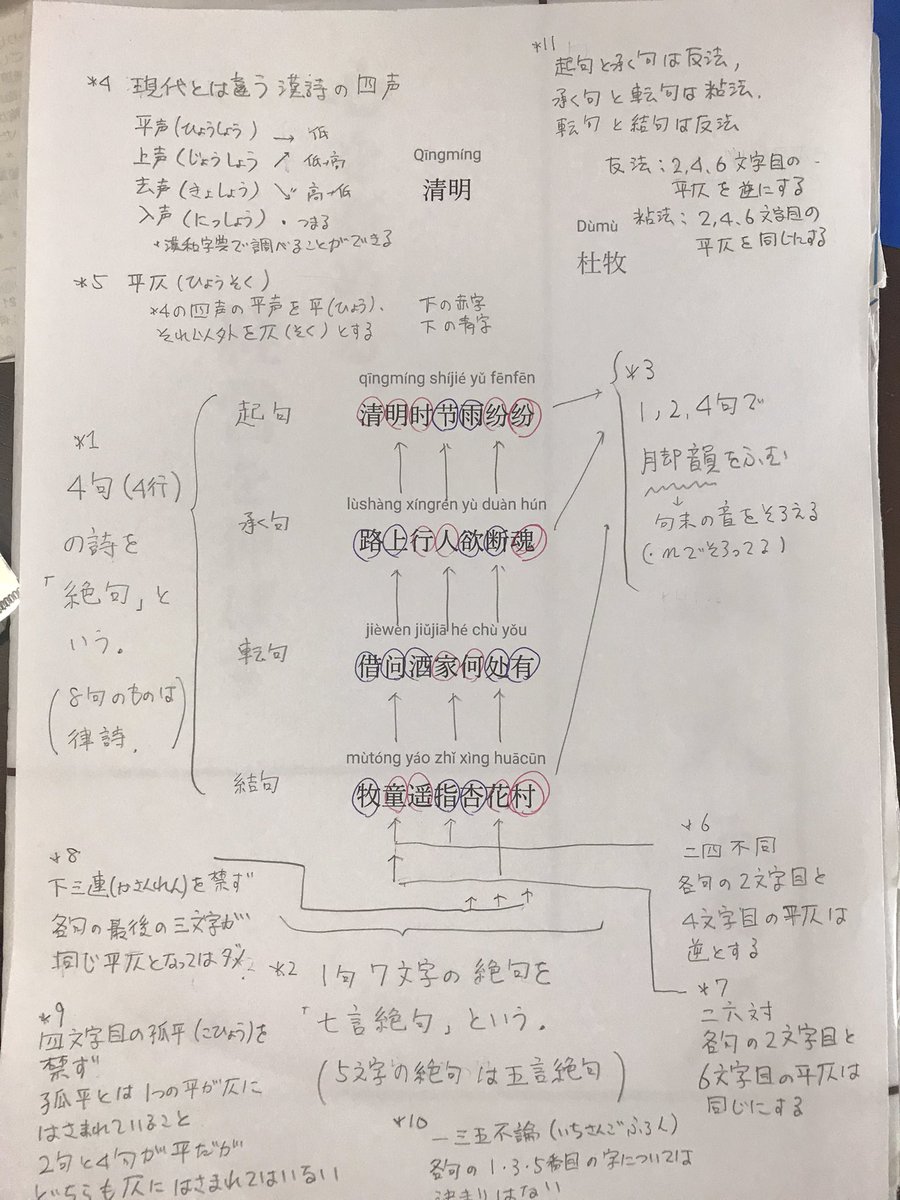 *4 現代とは違う漢詩の四声
平声(ひょうしょう) → 低
上声(じょうしょう ↗ 低→高
去声(きょしょう) ↘ 高→低
入声(にっしょう)・つまる
*漢和字典で調べることができる
*5 平仄(ひょうそく)
*4の四声の平声を平(ひょう)、 下の赤字
それ以外を仄(そく)とする 下の青字
*11
起句と承句は反法,
承句と転句は粘法.
転句と結句は反法
反法:2,4,6文字目の
平仄を逆にする
粘法:2,4,6文字目の
平仄を同じにする
Qīngmíng
清明
Dùmù
杜牧
*1
4句(4行)
の詩を
「絶句」と
いう。
(8句のものは
律詩.)
起句
qīngmíng shíjié yǔ fēnfēn
清明时节雨纷纷
承句
lùshàng xíngrén yù duàn hún
路上行人欲断魂
転句
jièwèn jiǔjiā hé chù yǒu
借问酒家何处有
結句
mùtóng yáo zhǐ xìng huācūn
牧童遥指杏花村
*3
1,2,4句で
脚韻をふむ
↓
句末の音をそろえる
(・nでそろってる)
*6
二四不同
各句の2文字目と
4文字目の平仄は
逆とする
*7
二六対
各句の2文字目と
6文字目の平仄は
同じにする
*8
下三連(かさんれん)を禁ず
各句の最後の三文字が
同じ平仄となってはダメ
*2 1句7文字の絶句を
「七言絶句」という。
(5文字の絶句は五言絶句)
*9
四文字目の孤平(こひょう)を
禁ず
孤平とは1つの平が仄に
はさまれていること
2句と4句が平だが
どちらも仄にはさまれてはいない
*10
一三五不論(いちさんごふろん)
各句の1・3・5番目の字については
決まりはない